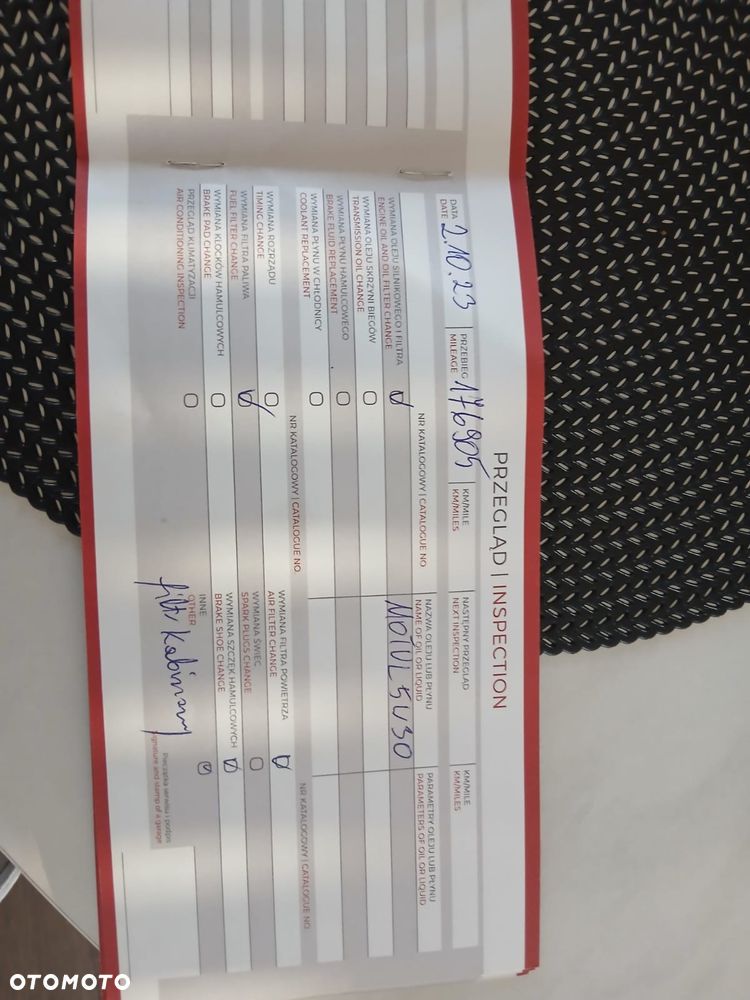 PRZEGLĄD | INSPECTION
DATA
DATE
2.10.23
PRZEBIEG
MILEAGE
176905
KM/MILE
KM/MILES
NASTĘPNY PRZEGLĄD
NEXT INSPECTION
KM/MILE
KM/MILES
NR KATALOGOWY | CATALOGUE NO
NAZWA OLEJU LUB PŁYNU
NAME OF OIL OR LIQUID
PARAMETRY OLEJU LUB PŁYNU
PARAMETERS OF OIL OR LIQUID
WYMIANA OLEJU SILNIKOWEGO I FILTRA
ENGINE OIL AND OIL FILTER CHANGE
MOTUL 5W30
WYMIANA OLEJU SKRZYNI BIEGÓW
TRANSMISSION OIL CHANGE
WYMIANA PŁYNU HAMULCOWEGO
BRAKE FLUID REPLACEMENT
WYMIANA PŁYNU W CHŁODNICY
COOLANT REPLACEMENT
NR KATALOGOWY | CATALOGUE NO
NR KATALOGOWY | CATALOGUE NO
WYMIANA ROZRZĄDU
TIMING CHANGE
WYMIANA FILTRA POWIETRZA
AIR FILTER CHANGE
WYMIANA FILTRA PALIWA
FUEL FILTER CHANGE
WYMIANA ŚWIEC
SPARK PLUGS CHANGE
WYMIANA KLOCKÓW HAMULCOWYCH
BRAKE PAD CHANGE
WYMIANA SZCZĘK HAMULCOWYCH
BRAKE SHOE CHANGE
PRZEGLĄD KLIMATYZACJI
AIR CONDITIONING INSPECTION
INNE
OTHER
filtr Kabinowy
Pieczątka serwisu i podpis
Signature and stamp of a garage
OTOMOTO